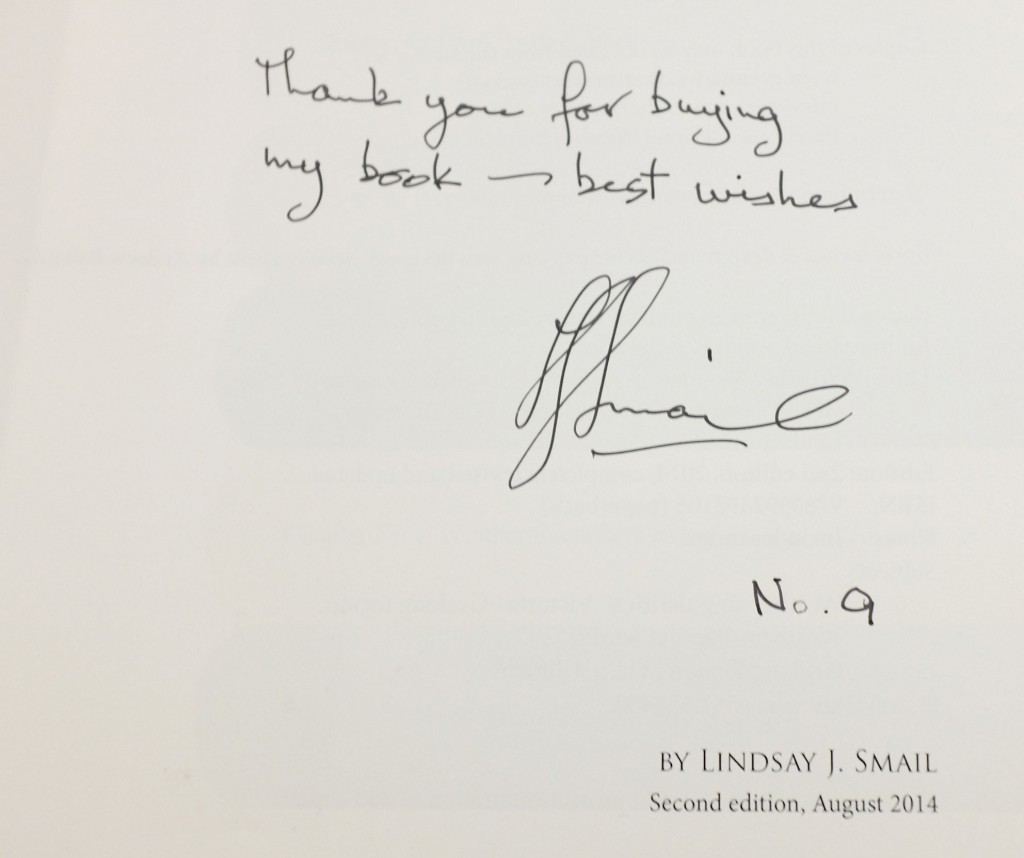 Thank you for buying
my book — best wishes
LJSmail
No. 9
BY LINDSAY J. SMAIL
Second edition, August 2014